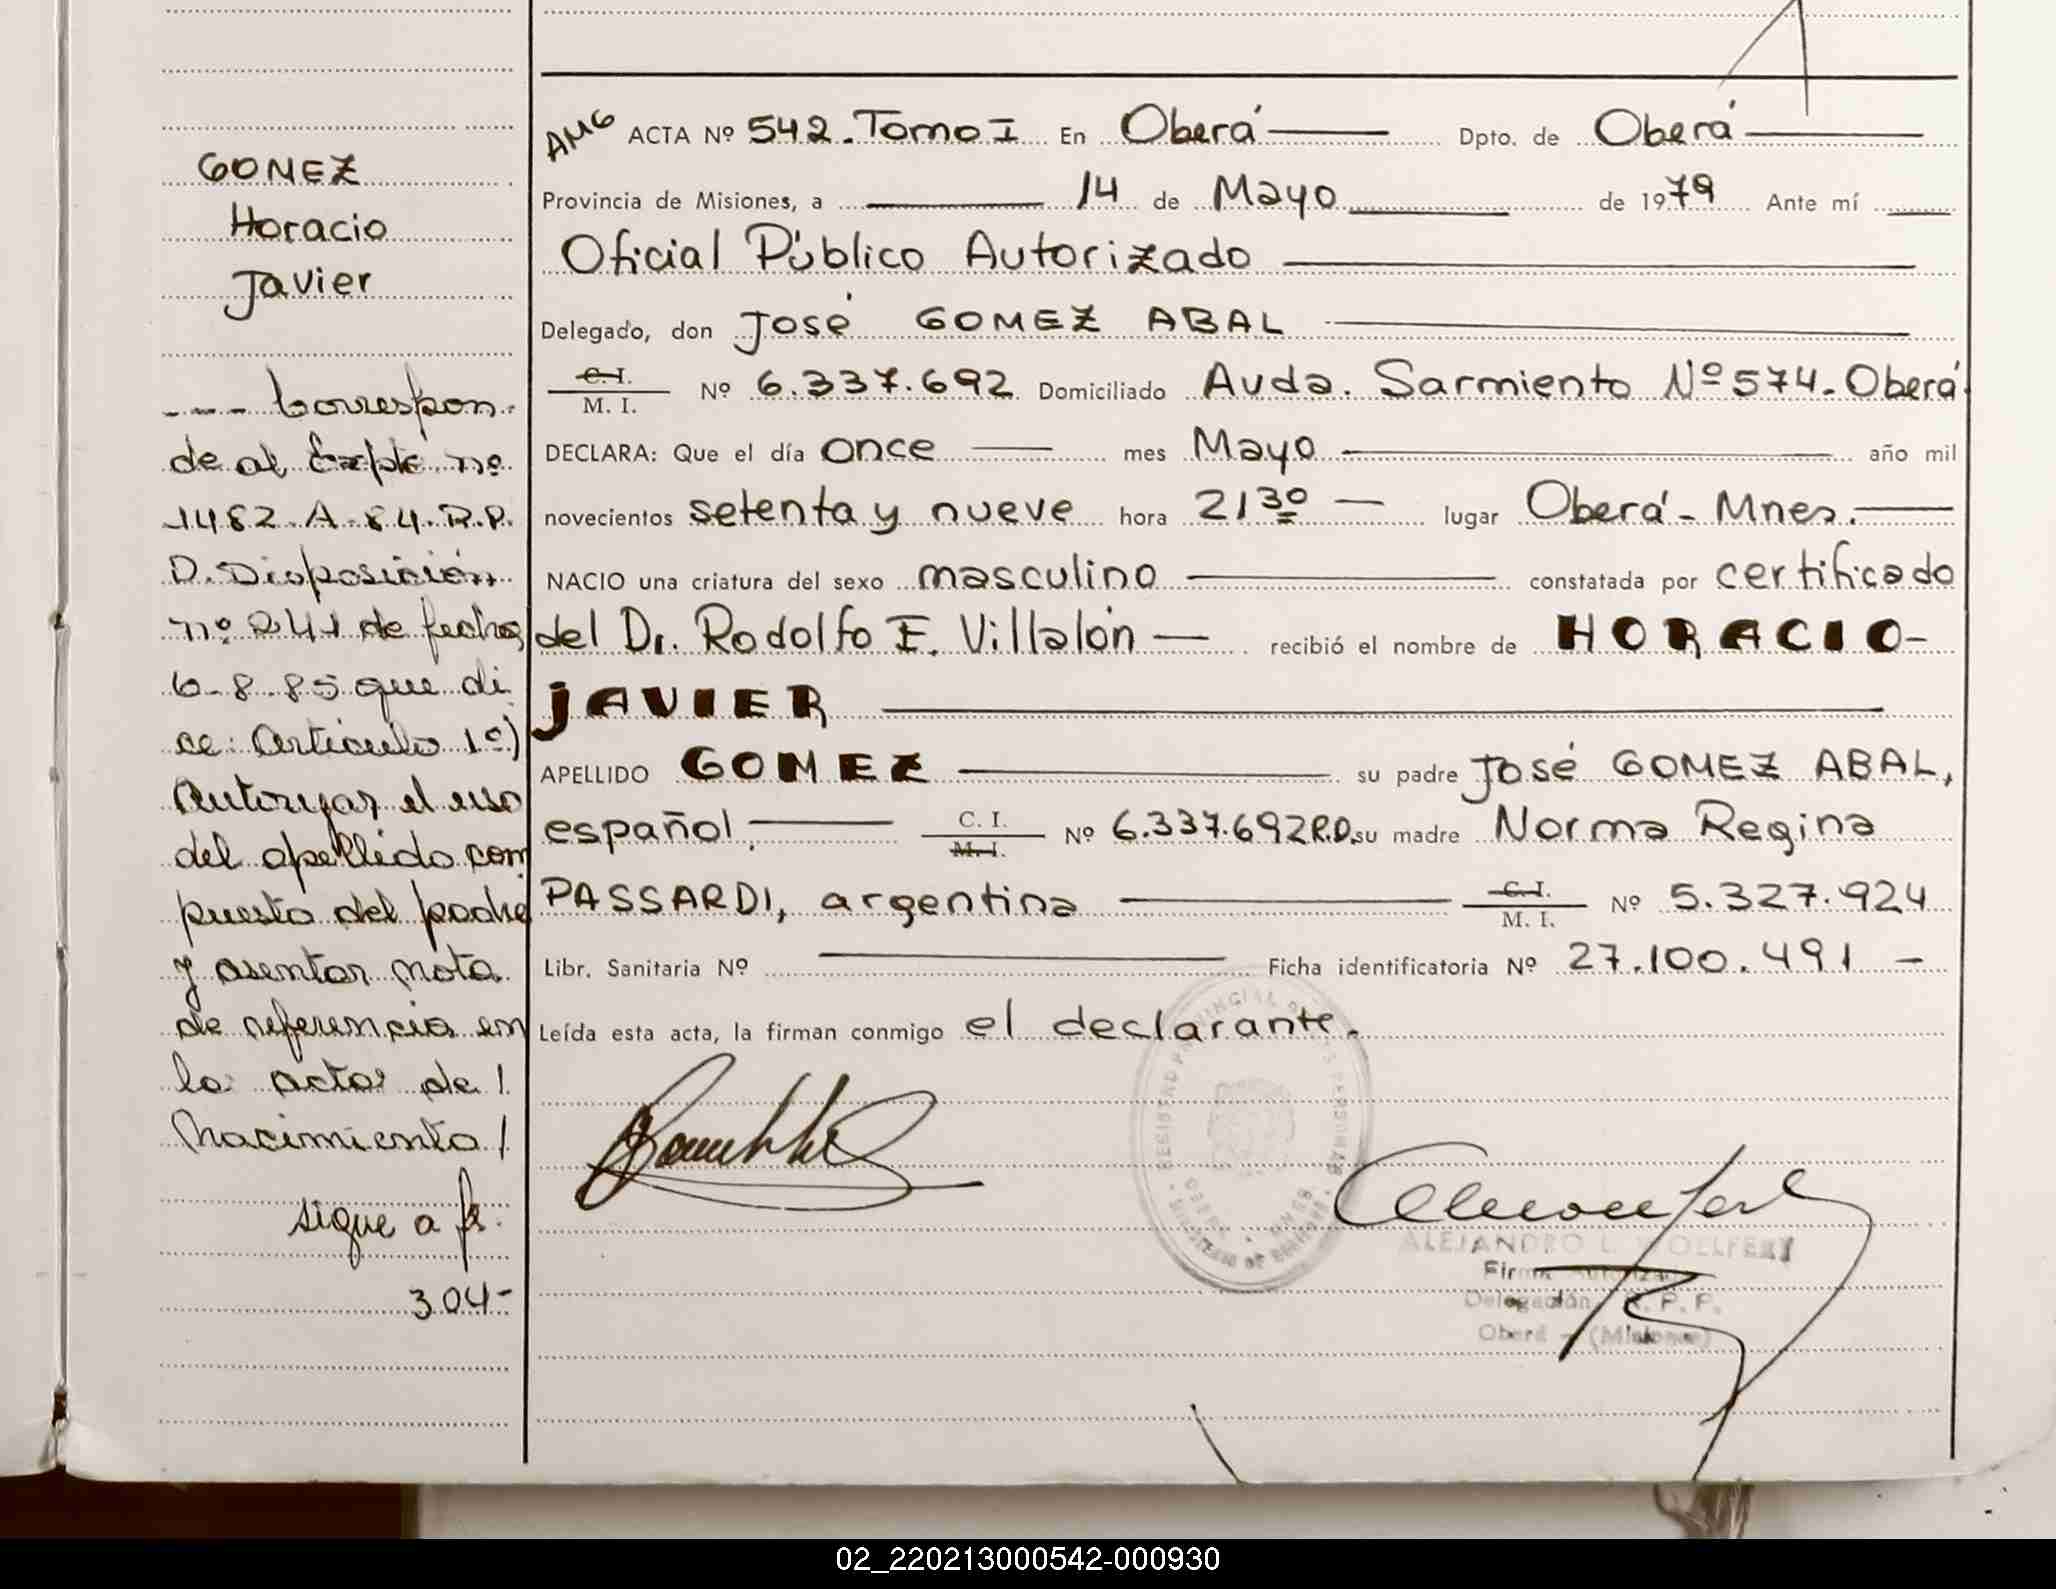 GOMEZ
Horacio
Javier
---- Correspon-
de al Expte nº
1482-A-84-R.P.
D. Disposición
nº 241 de fecha
6-8-85 que di
ce: Artículo 1º)
Autorizar el uso
del apellido com
puesto del padre
y asentar nota
de referencia en
la acta de
Nacimiento
sigue a fs.
304-
AMG ACTA Nº 542. Tomo I En Oberá Dpto. de Oberá
Provincia de Misiones, a 14 de Mayo de 1979 Ante mí
Oficial Público Autorizado
Delegado, don José GOMEZ ABAL
C. I.
M. I. Nº 6.337.692 Domiciliado Avda. Sarmiento Nº 574- Oberá
DECLARA: Que el día once mes Mayo año mil
novecientos setenta y nueve hora 21 30 lugar Oberá - Mnes.
NACIO una criatura del sexo masculino constatada por certificado
del Dr. Rodolfo E. Villalón recibió el nombre de HORACIO-
JAVIER
APELLIDO GOMEZ su padre José GOMEZ ABAL,
español. C. I.
M. I. Nº 6.337.692 R.D. su madre Norma Regina
PASSARDI, argentina C. I.
M. I. Nº 5.327.924
Libr. Sanitaria Nº Ficha identificatoria Nº 27.100.491 -
Leída esta acta, la firman conmigo el declarante.
ALEJANDRO L.
Firma Autorizada
Delegación R. P. P.
Oberá - (Misiones)
02_220213000542-000930